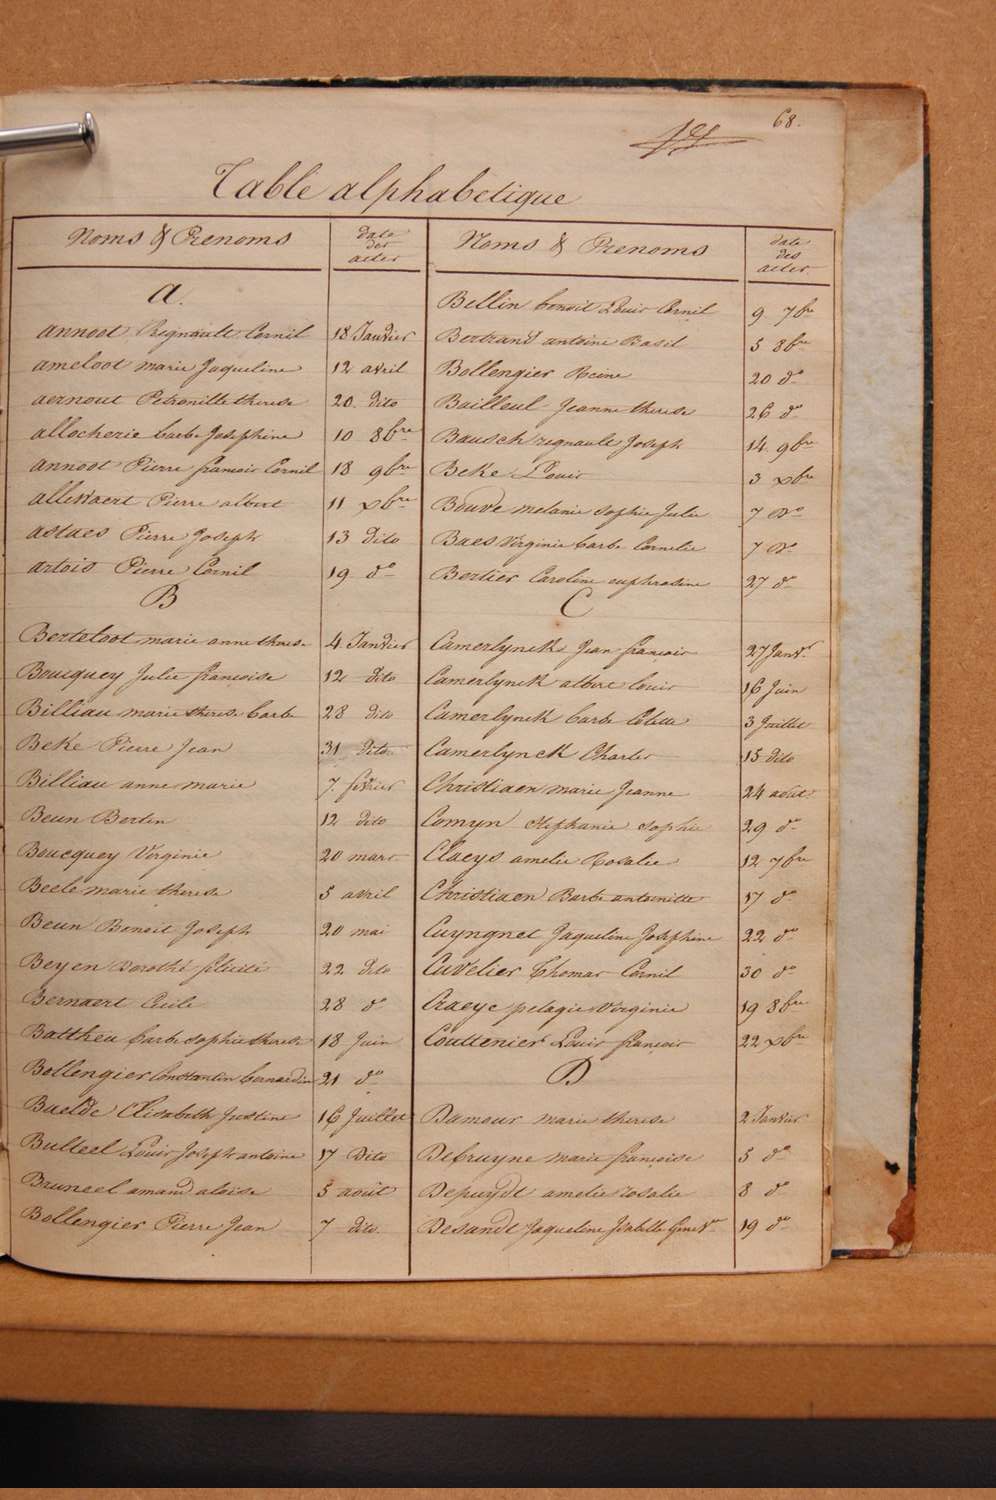 68.
Table alphabetique
Noms & Prenoms
date
des
actes
A.
annoot Regnault Cornil 18 Janvier
ameloot marie Jaqueline 12 avril
aernout Petronille therese 20 dito
allocherie barbe Josephine 10 8bre
annoot Pierre françois Cornil 18 9bre
allewaert Pierre albert 11 xbre
astaes Pierre Joseph 13 dito
artois Pierre Cornil 19 do
B
Berteloot marie anne therese 4 Janvier
Boucquey Julie françoise 12 dito
Billiau marie therese barbe 28 dito
Beke Pierre Jean 31 dito
Billiau anne marie 7 fevrier
Beun Bertin 12 dito
Boucquey Virginie 20 mars
Beele marie therese 5 avril
Beun Benoit Joseph 20 mai
Beyen Dorothé felicité 22 dito
Bernaert Cecile 28 do
Battheu barbe sophie therese 18 Juin
Bollengier Constantin bernardin 21 do
Baelde Elisabeth Justine 16 Juillet
Bulteel Louis Joseph antoine 17 Dito
Bruneel amand aloise 5 août
Bollengier Pierre Jean 7 dito
Noms & Prenoms
date
des
actes
Bellin benoit Louis Cornil 9 7bre
Bertrand antoine Basil 5 8bre
Bollengier Reine 20 do
Bailleul Jeanne therese 26 do
Bausch regnault Joseph 14 9bre
Beke Louis 3 xbre
Bouve melanie sophie Julie 7 Do
Baes Virginie barbe Cornelie 7 Do
Bertier Caroline euphrosine 27 do
C
Camerlynck Jean françois 27 Janvr
Camerlynck albert louis 16 Juin
Camerlynck barbe Colette 3 Juillet
Camerlynck Charles 15 dito
Christiaen marie Jeanne 24 août
Comyn stephanie sophie 29 do
Claeys amelie Rosalie 12 7bre
Christiaen Barbe antoinette 17 do
Cuyngnet Jaqueline Josephine 22 do
Cuvelier Thomas Cornil 30 do
Craeye pelagie Virginie 19 8bre
Couttenier Louis françois 22 xbre
D
Damour marie therese 2 Janvier
Debruyne marie françoise 5 do
Depuydt amelie rosalie 8 do
Desandt Jaqueline Isabelle Genev 19 do